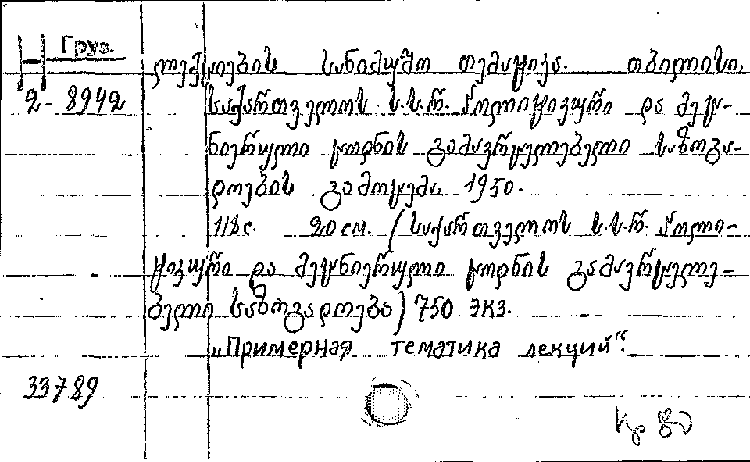 Н Груз.
2-8942
ლექციების სანიმუშო თემატიკა. თბილისი.
საქართველოს ს.ს.რ. პოლიტიკური და მეც-
ნიერული ცოდნის გამავრცელებელი საზოგა-
დოების გამოცემა. 1950.
112с. 20см. (საქართველოს ს.ს.რ. პოლი-
ტიკური და მეცნიერული ცოდნის გამავრცელე-
ბელი საზოგადოება) 750 экз.
„Примерная тематика лекций“.
33789